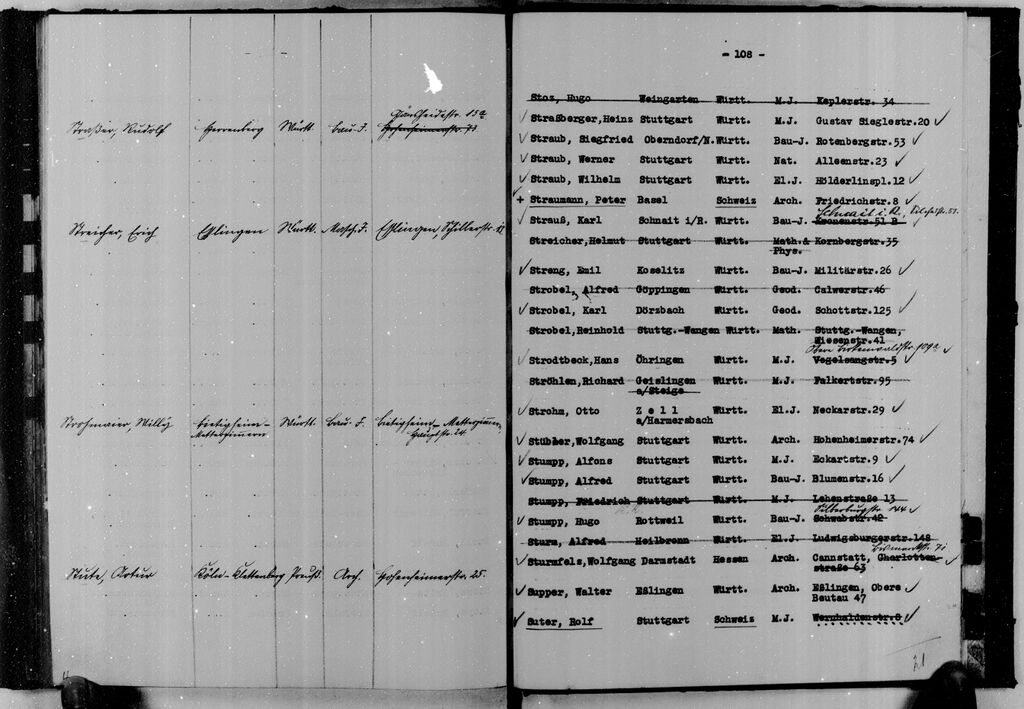 Gänsheidestr. 15a
Straßer, Rudolf Herrenberg Württ. Bau-J. Hohenheimerstr. 71
Streicher, Erich Eßlingen Württ. Masch.J. Eßlingen, Schillerstr. 12
Strohmaier, Willy Bietigheim- Württ. Bau-J. Bietigheim-Metterzimmern
Metterzimmern Hauptstr. 24.
Stute, Artur Köln-Klettenberg Preuß. Arch. Hohenheimerstr. 25.
- 108 -
Stoz, Hugo Weingarten Württ. M.J. Keplerstr. 34
✓ Straßberger, Heinz Stuttgart Württ. M.J. Gustav Sieglestr.20 ✓
✓ Straub, Siegfried Oberndorf/N. Württ. Bau-J. Rotenbergstr.53 ✓
✓ Straub, Werner Stuttgart Württ. Nat. Alleenstr.23 ✓
✓ Straub, Wilhelm Stuttgart Württ. El.J. Hölderlinspl.12 ✓
✓ + Straumann, Peter Basel Schweiz Arch. Friedrichstr.8 ✓
Schnait i. R.,
✓ Strauß, Karl Schnait i/R. Württ. Bau-J. Kronenstr.51 B
Streicher, Helmut Stuttgart Württ. Math.& Kornbergstr.35
Phys.
✓ Streng, Emil Koselitz Württ. Bau-J. Militärstr.26 ✓
Strobel, Alfred Göppingen Württ. Geod. Calwerstr.46
✓ Strobel, Karl Dörzbach Württ. Geod. Schottstr.125 ✓
Strobel, Reinhold Stuttg.-Wangen Württ. Math. Stuttg.-Wangen,
Wiesenstr.41
Obere Birkenwaldstr. 109a ✓
✓ Strodtbeck, Hans Öhringen Württ. M.J. Vogelsangstr.5 ✓
Ströhlen, Richard Geislingen Württ. M.J. Falkertstr.95
a/Steige
✓ Strohm, Otto Zell Württ. El.J. Neckarstr.29 ✓
a/Harmersbach
✓ Stübler, Wolfgang Stuttgart Württ. Arch. Hohenheimerstr.74 ✓
✓ Stumpp, Alfons Stuttgart Württ. M.J. Eckartstr.9 ✓
✓ Stumpp, Alfred Stuttgart Württ. Bau-J. Blumenstr.16 ✓
Stumpp, Friedrich Stuttgart Württ. M.J. Lehenstraße 13
Silberburgstr. 144 ✓
✓ Stumpp, Hugo Rottweil Württ. Bau-J. Schwabstr.42
Sturm, Alfred Heilbronn Württ. El.J. Ludwigsburgerstr.148
Bismarckstr. 71
✓ Sturmfels, Wolfgang Darmstadt Hessen Arch. Cannstatt, Charlotten- ✓
straße 63
✓ Supper, Walter Eßlingen Württ. Arch. Eßlingen, Obere ✓
Beutau 47
✓ Suter, Rolf Stuttgart Schweiz M.J. Wernhaldenstr.8 ✓
21